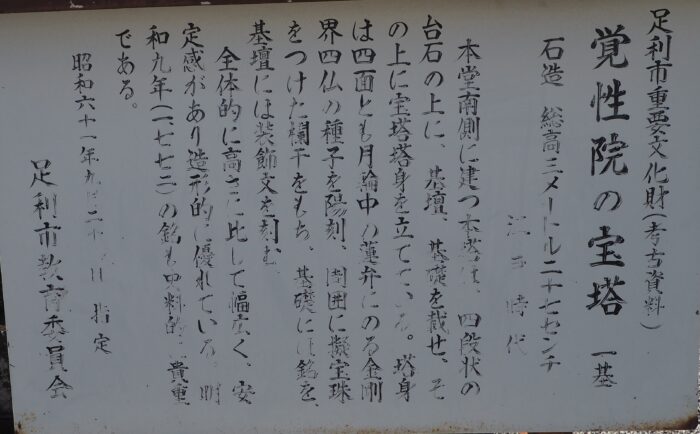 足利市重要文化財(考古資料)
覚性院の宝塔 一基
石造 総高三メートル二十七センチ
江戸時代
本堂南側に建つ本塔は、四段状の
台石の上に、基壇、基礎を載せ、そ
の上に宝塔塔身を立てている。塔身
は四面とも月輪中の蓮弁にのる金剛
界四仏の種子を陽刻、周囲に擬宝珠
をつけた欄干をもち、基礎には銘を、
基壇には装飾文を刻む
全体的に高さに比して幅広く、安
定感があり造形的に優れている。明
和九年(一七七二)の銘も史料的 貴重
である。
昭和六十一年 月二十 日 指定
足利市教育委員会